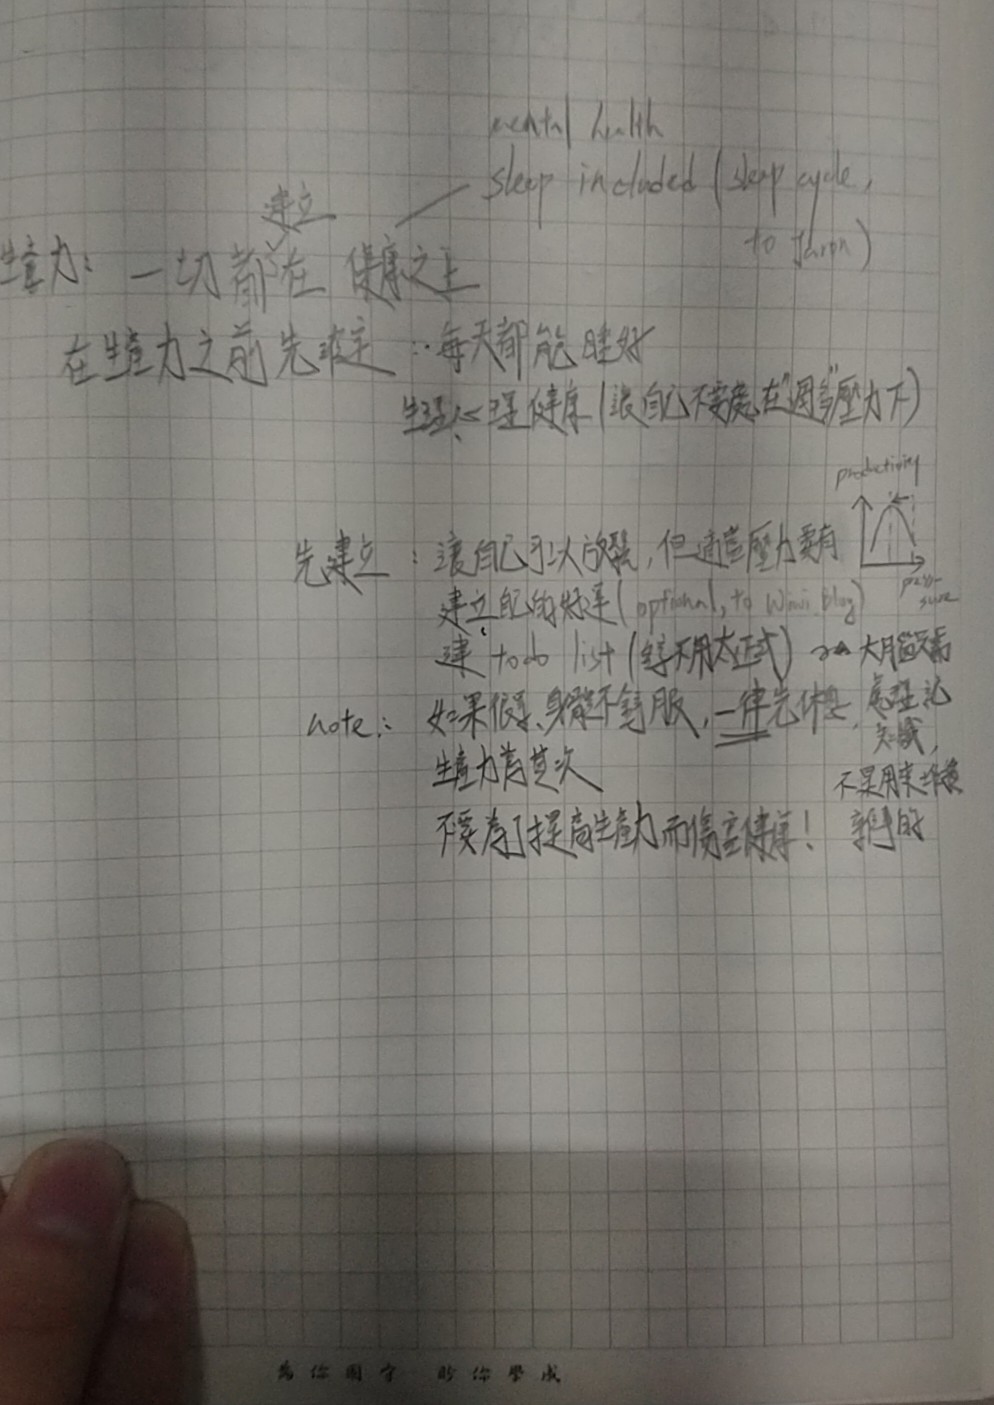 mental health
sleep included (sleep cycle,
to Jason)
建立
生產力: 一切都在 健康之上
在生產力之前先確定: ·每天都能睡好
生理心理健康(讓自己不要處在"過多"壓力下)
productivity
pressure
先建立: 讓自己可以放鬆,但適當壓力要有
建立自己的 (optional, to Wiwi blog)
建 todo list (不用太正式) 大腦是需
處理記
知識,
不是用來
雜事的
note: 如果很累、身體不舒服,一律先休息,
生產力為其次
不要為了提高生產力而傷害健康!
為你固守 盼你學成